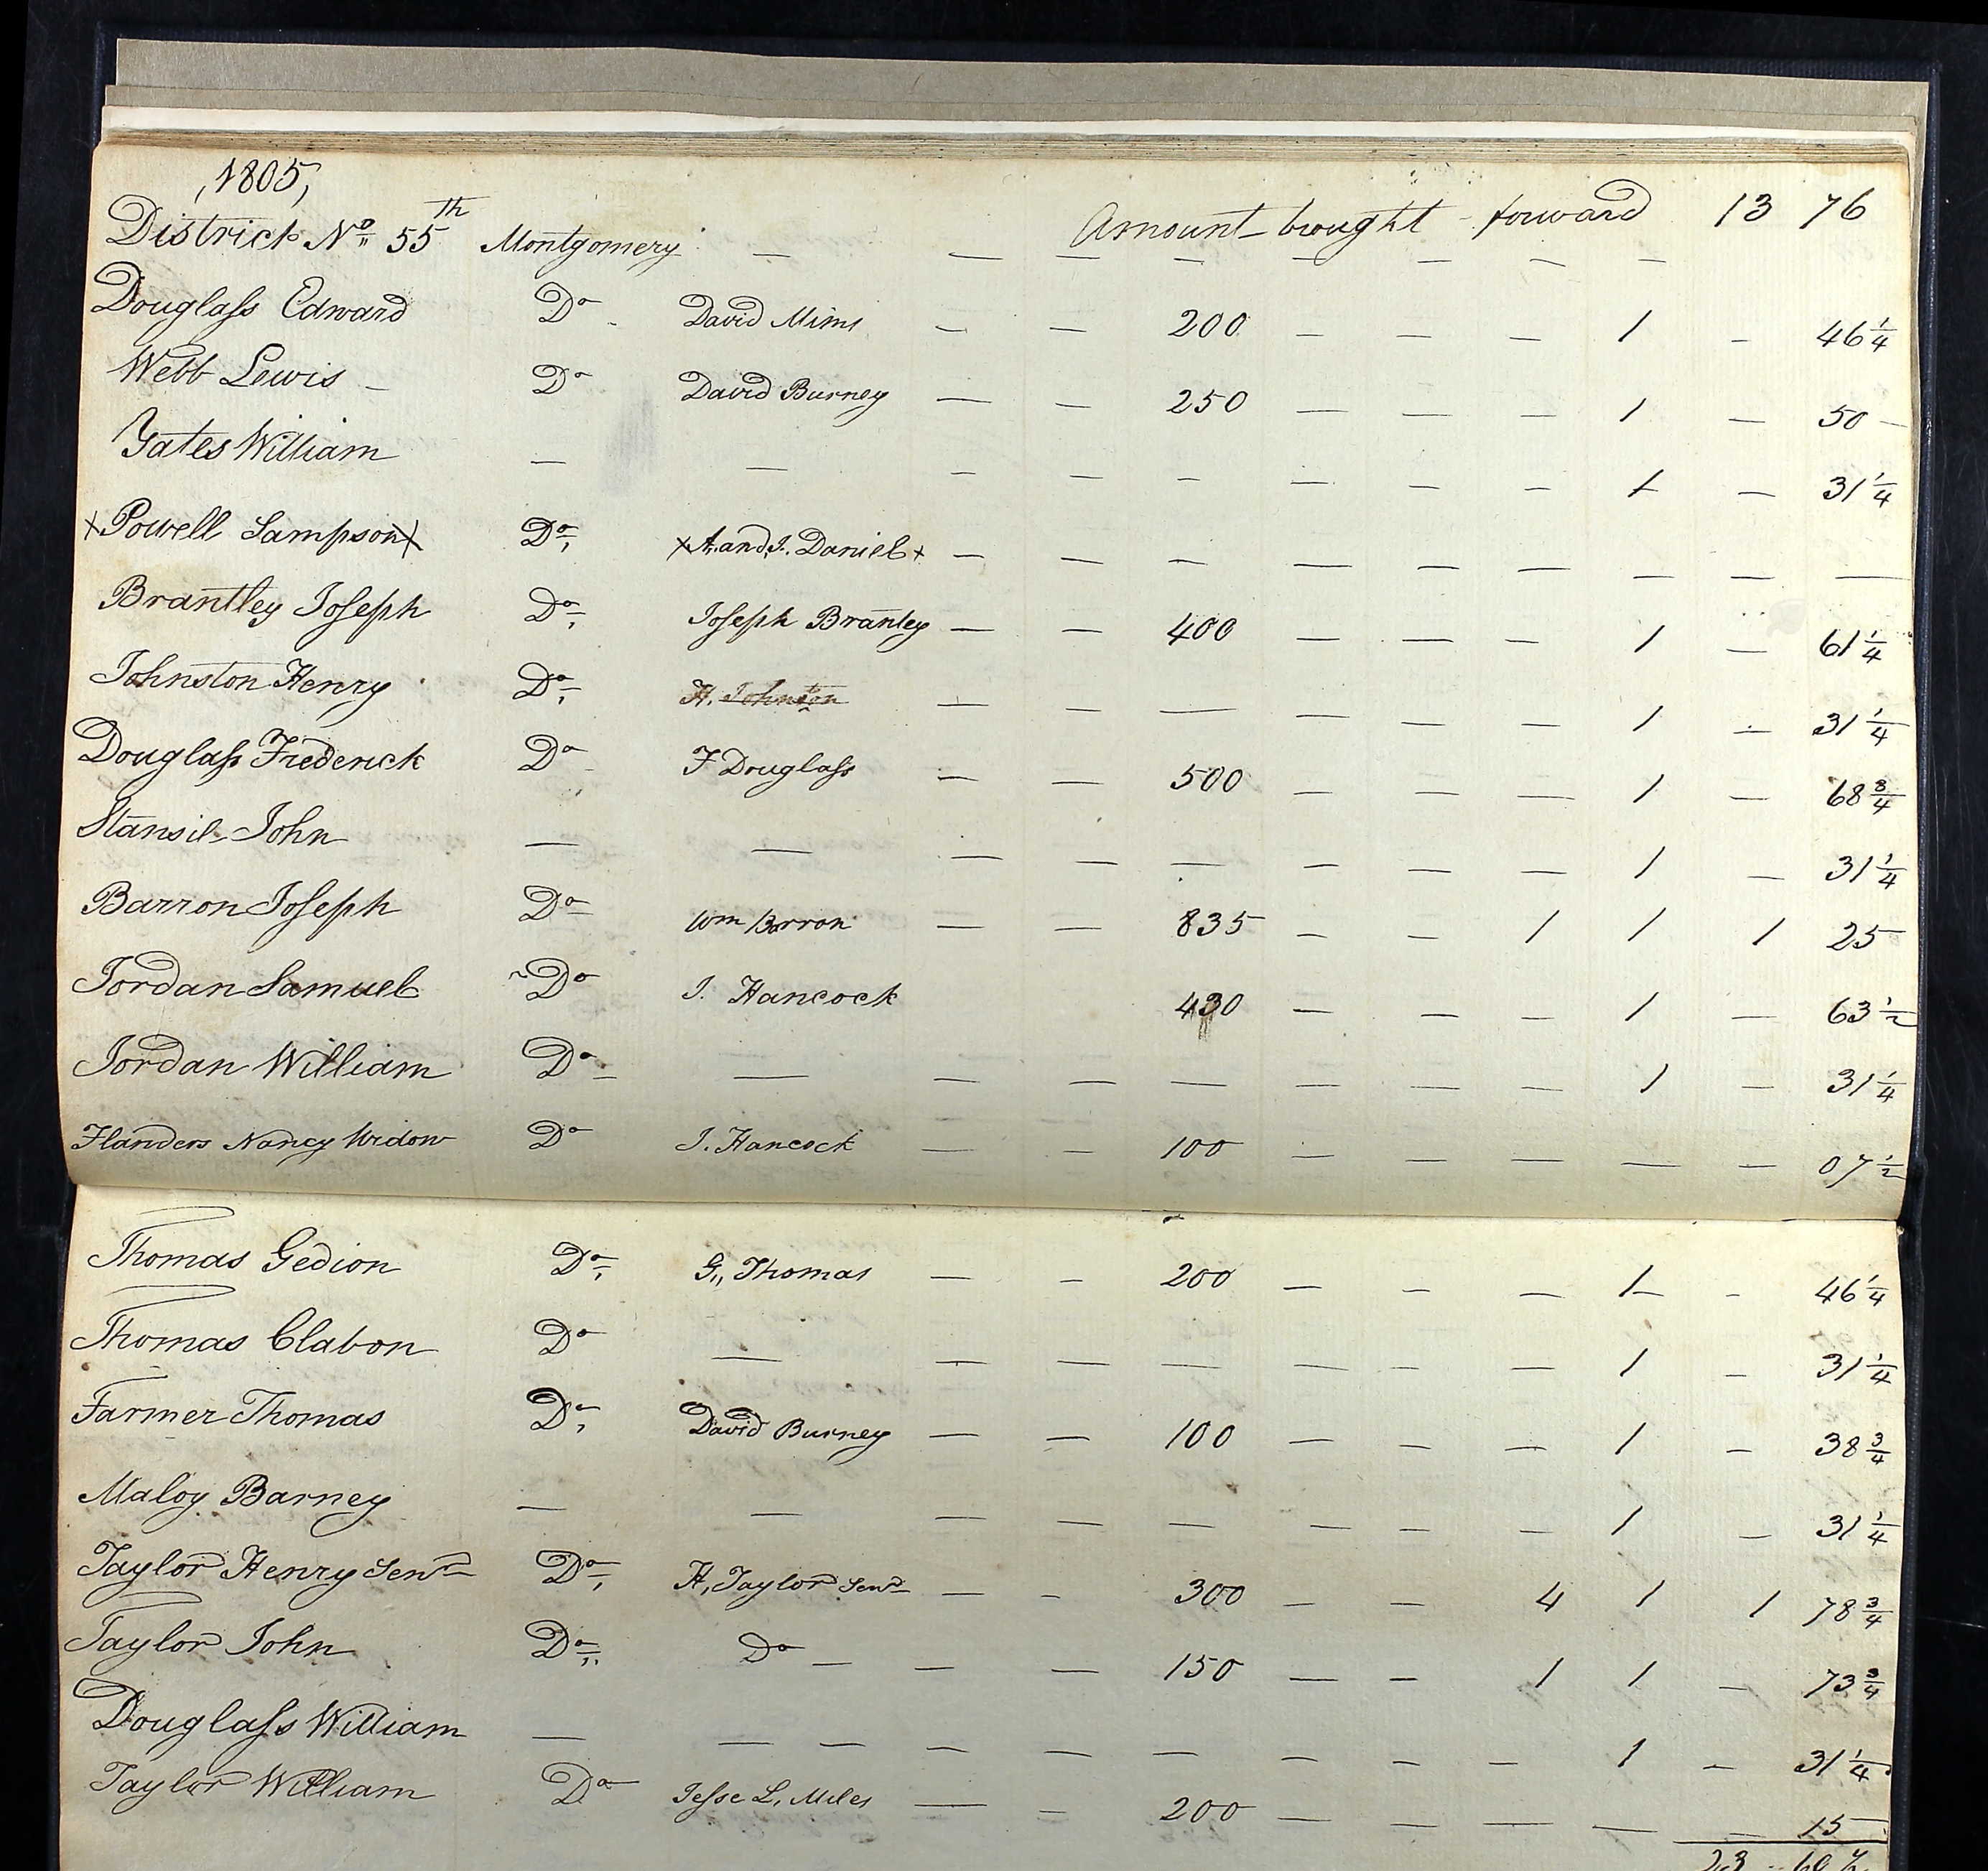 ,1805,
District No 55th Montgomery — — — — — — — — Amount brought forward 13 76
Douglass Edward Do David Mims — — 200 — — — 1 — 46 1/4
Webb Lewis — Do David Burney — — 250 — — — 1 — 50 —
Yates William — — — — — — — — 1 — 31 1/4
X Powell Sampson X Do X A. and J. Daniel X — — — — — — — — —
Brantley Joseph Do Joseph Branley — — 400 — — — 1 — 61 1/4
Johnston Henry Do H. Johnton — — — — — — 1 — 31 1/4
Douglass Frederick Do F Douglass — — 500 — — — 1 — 68 3/4
Stansil John — — — — — — — — 1 — 31 1/4
Barron Joseph Do Wm Barron — — 835 — — 1 1 1 25
Jordan Samuel Do J. Hancock 430 — — — 1 — 63 1/2
Jordan William Do — — — — — — — 1 — 31 1/4
Flanders Nancy Widow Do J. Hancock — — 100 — — — — — 07 1/2
Thomas Gedion Do G,, Thomas — — 200 — — — 1 — 46 1/4
Thomas Clabon Do — — — — — — — 1 — 31 1/4
Farmer Thomas Do David Burney — — 100 — — — 1 — 38 3/4
Maloy Barney — — — — — — — — 1 — 31 1/4
Taylor Henry Senr Do H, Taylor Senr — — 300 — — 4 1 1 78 3/4
Taylor John Do Do — — — 150 — — 1 1 — 73 3/4
Douglass William — — — — — — — — — 1 — 31 1/4
Taylor William Do Jesse L, Miles — — 200 — — — — — 15
23